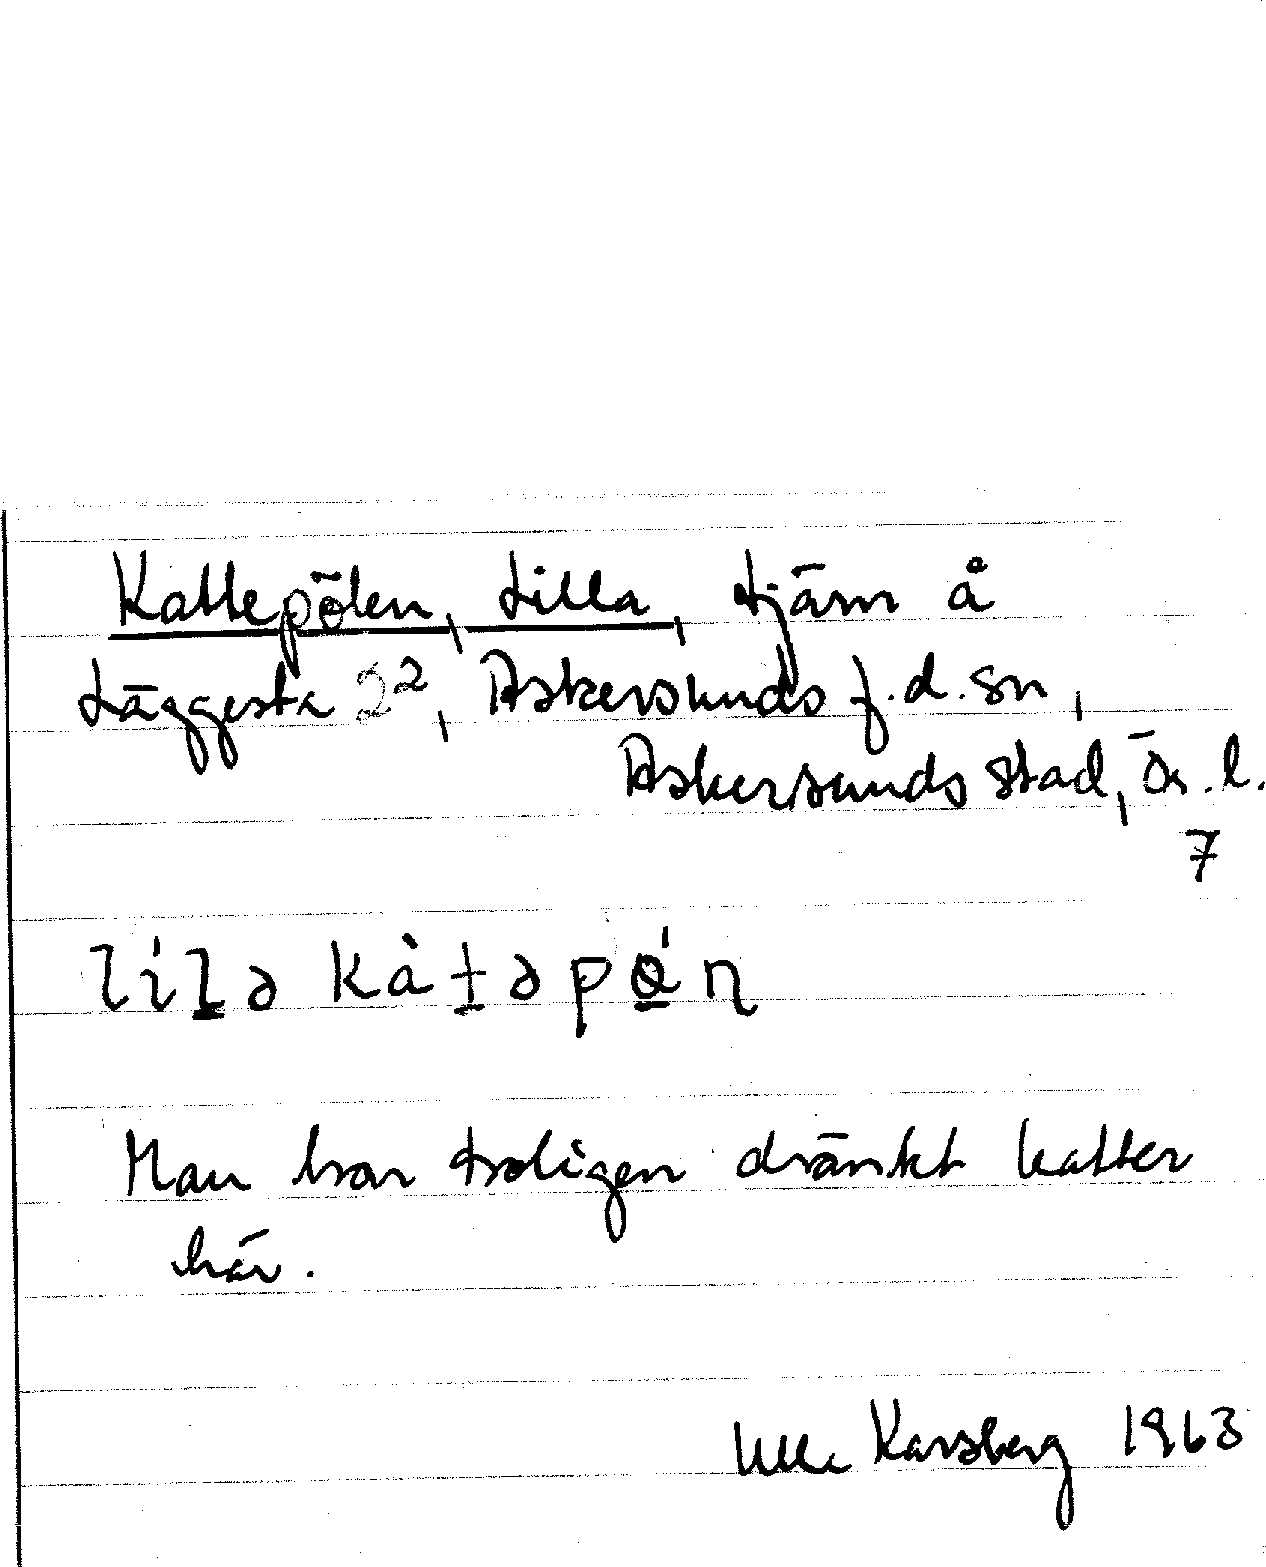 Kattepölen, Lilla, tjärn å
Läggesta 2², Askersunds f.d. sn,
Askersunds stad, Ör. l.
7
lílə kàtəpǿn
Man har troligen dränkt katter
här.
Ulla Karsberg 1963